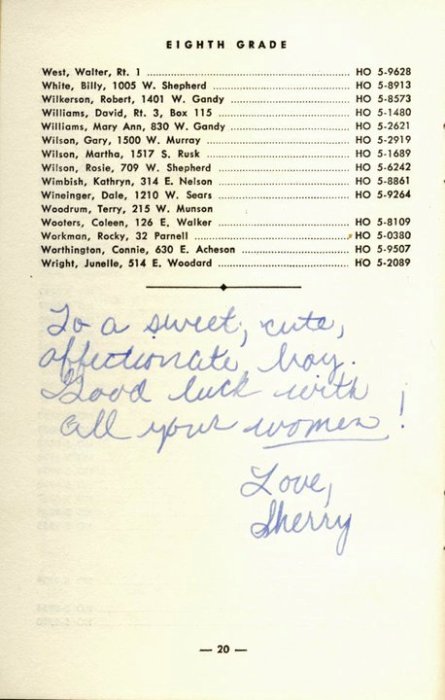 EIGHTH GRADE
West, Walter, Rt. 1 ................ HO 5-9628
White, Billy, 1005 W. Shepherd ................ HO 5-8913
Wilkerson, Robert, 1401 W. Gandy ................ HO 5-8573
Williams, David, Rt. 3, Box 115 ................ HO 5-1480
Williams, Mary Ann, 830 W. Gandy ................ HO 5-2621
Wilson, Gary, 1500 W. Murray ................ HO 5-2919
Wilson, Martha, 1517 S. Rusk ................ HO 5-1689
Wilson, Rosie, 709 W. Shepherd ................ HO 5-6242
Wimbish, Kathryn, 314 E. Nelson ................ HO 5-8861
Wineinger, Dale, 1210 W. Sears ................ HO 5-9264
Woodrum, Terry, 215 W. Munson
Wooters, Coleen, 126 E. Walker ................ HO 5-8109
Workman, Rocky, 32 Parnell ................ HO 5-0380
Worthington, Connie, 630 E. Acheson ................ HO 5-9507
Wright, Junelle, 514 E. Woodard ................ HO 5-2089
To a sweet, cute,
affectionate boy.
Good luck with
all your women!
Love,
Sherry
— 20 —